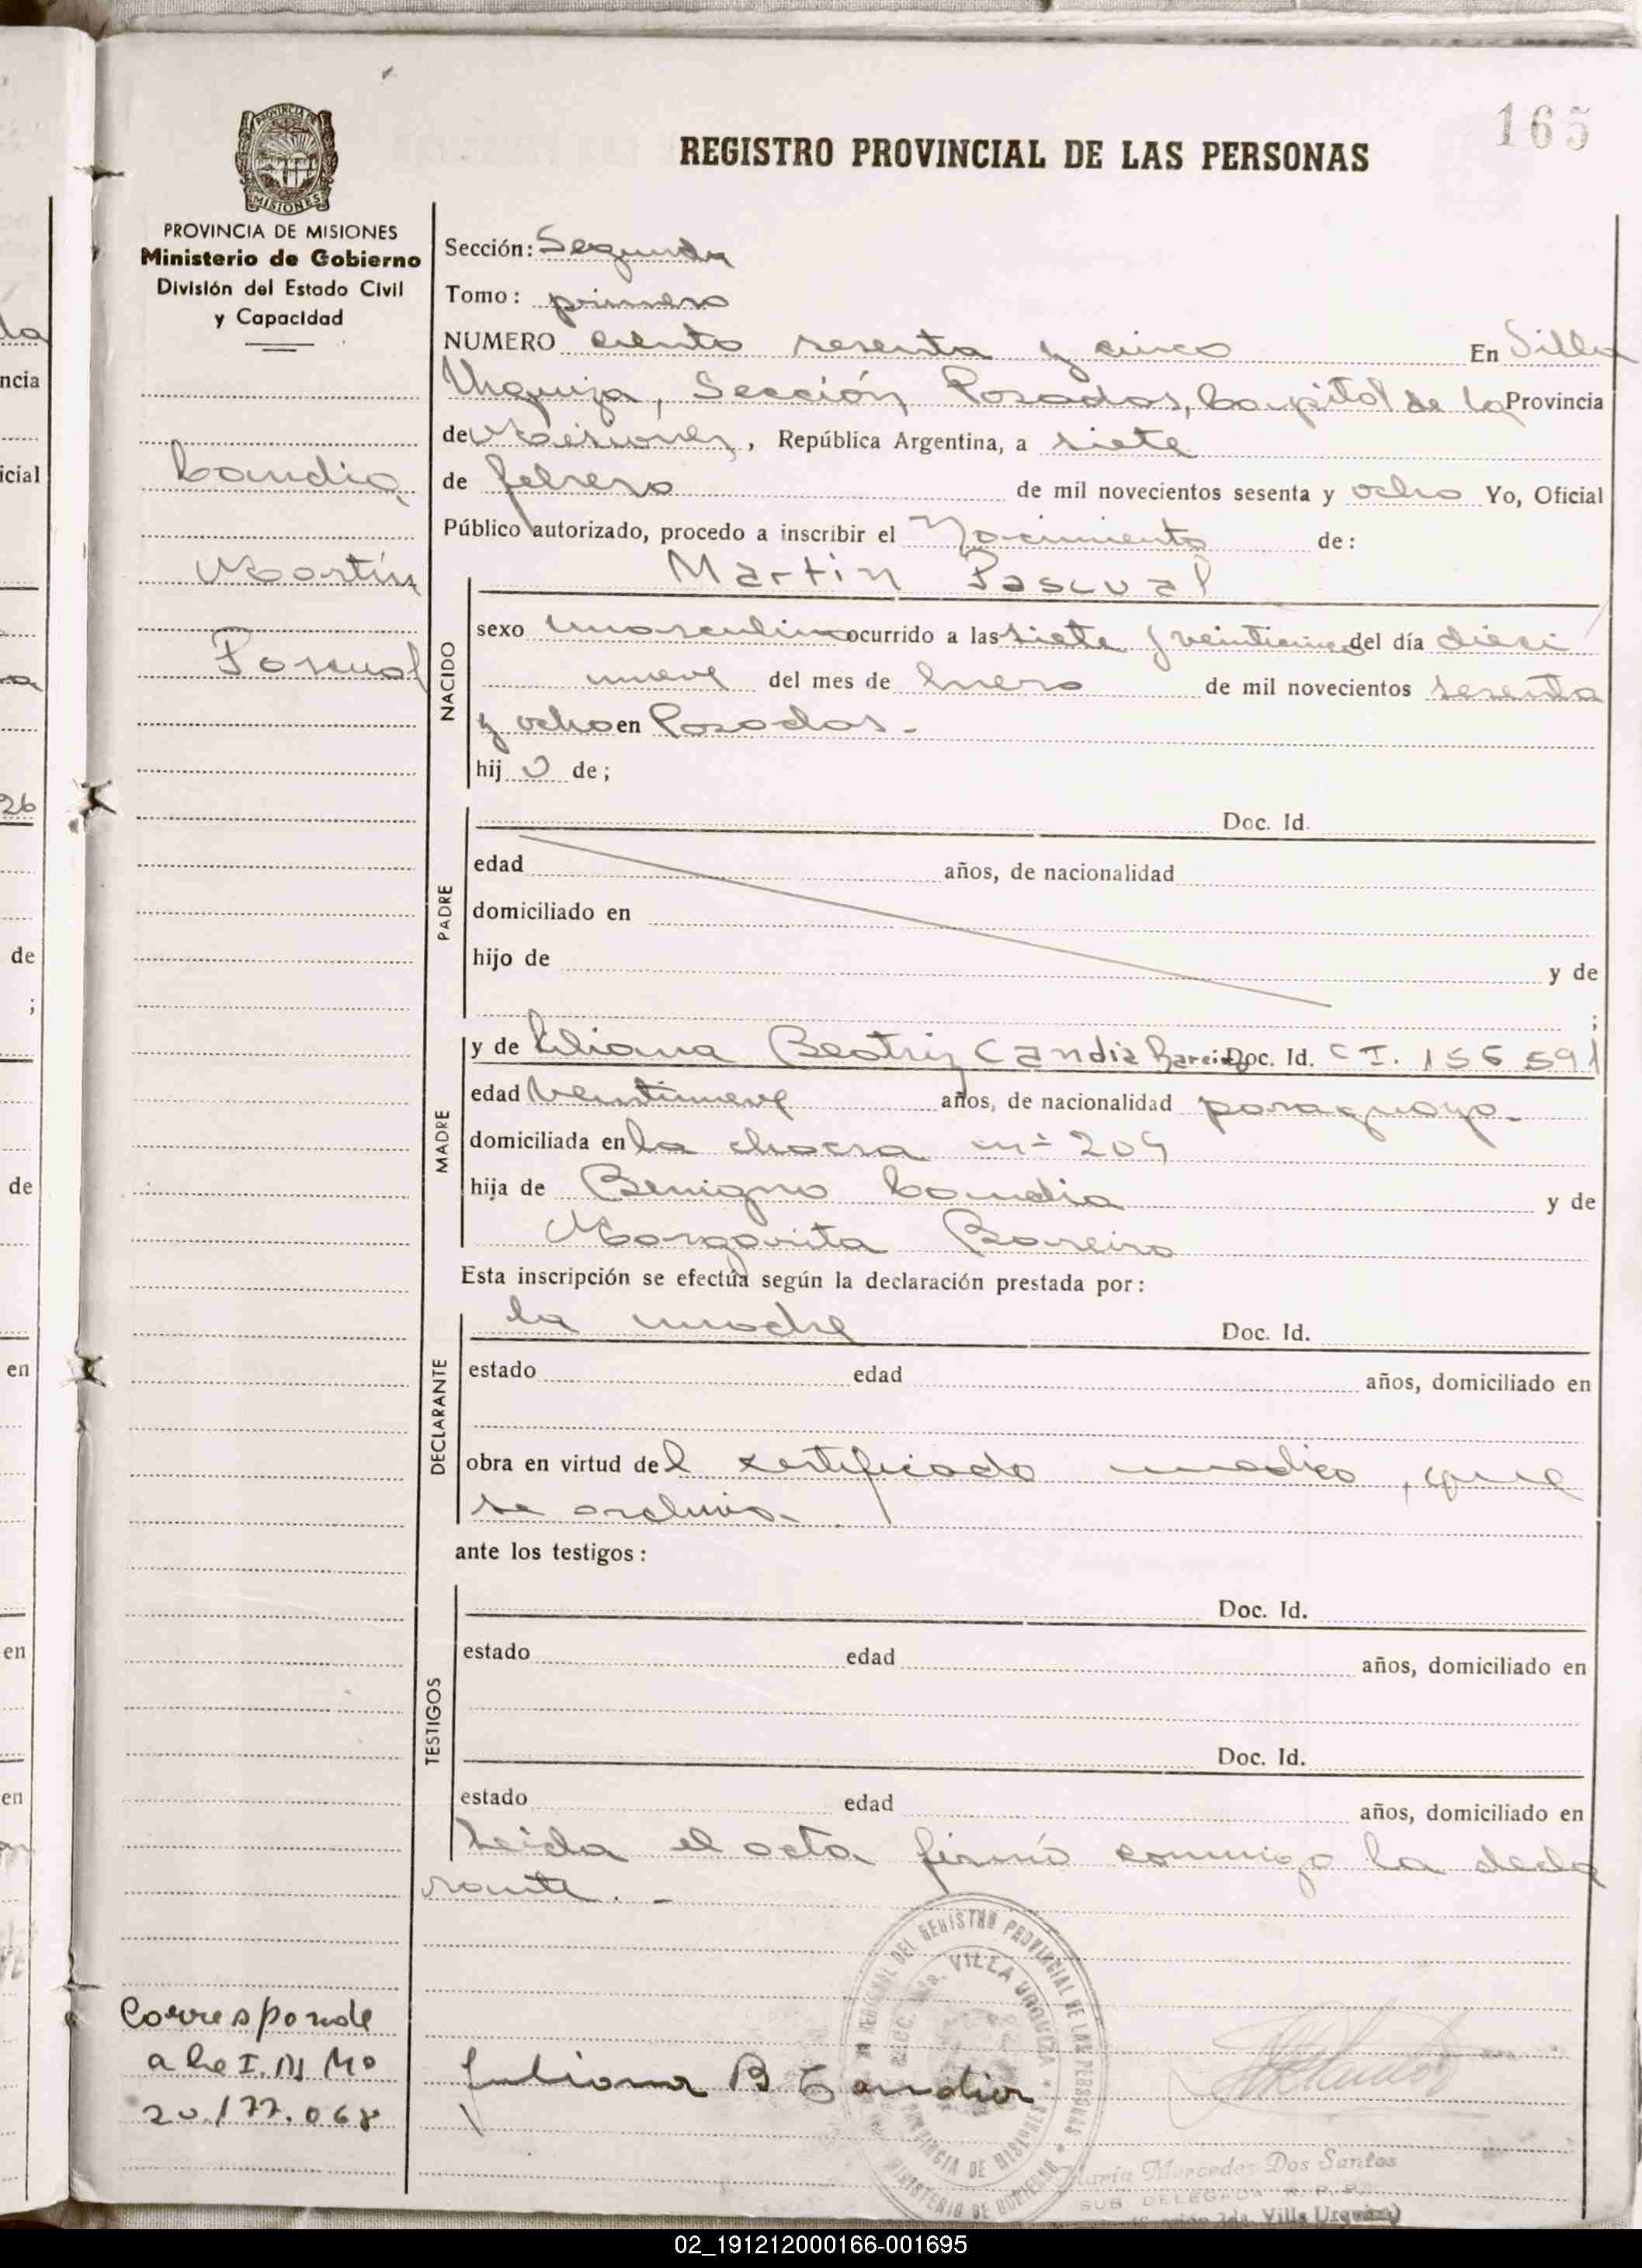 165
REGISTRO PROVINCIAL DE LAS PERSONAS
PROVINCIA DE MISIONES
Ministerio de Gobierno
División del Estado Civil
y Capacidad
Candia
Martín
Pascual
Sección: Segunda
Tomo: primero
NUMERO ciento sesenta y cinco En Villa
Urquiza, Sección Posadas, Capital de la Provincia
de Misiones, República Argentina, a siete
de febrero de mil novecientos sesenta y ocho Yo, Oficial
Público autorizado, procedo a inscribir el Nacimiento de:
Martin Pascual
NACIDO
sexo masculino ocurrido a las siete y veinticinco del día dieci
nueve del mes de Enero de mil novecientos sesenta
y ocho en Posadas.-
hij o de;
PADRE
Doc. Id.
edad años, de nacionalidad
domiciliado en
hijo de y de
;
MADRE
y de Beatriz Candia Doc. Id. C I. 156 591
edad veintinueve años, de nacionalidad paraguaya-
domiciliada en la chacra nº 209
hija de Benigno Candia y de
Margarita Bareiro
Esta inscripción se efectúa según la declaración prestada por:
DECLARANTE
la madre Doc. Id.
estado edad años, domiciliado en
obra en virtud del certificado medico, que
se archiva.
ante los testigos:
TESTIGOS
Doc. Id.
estado edad años, domiciliado en
Doc. Id.
estado edad años, domiciliado en
Leida el acta firmó conmigo la decla
rante.-
Corresponde
a la I. M Nº
20.177.068
Juliana B Candia
REGIONAL DEL REGISTRO PROVINCIAL DE LAS PERSONAS
SECC. 2da. VILLA URQUIZA
PROVINCIA DE MISIONES
MINISTERIO DE GOBIERNO
María Mercedes Dos Santos
SUB DELEGADA R. P. P.
(Sección 2da. Villa Urquiza)
la
ncia
icial
26
de
;
de
en
en
en
02_191212000166-001695